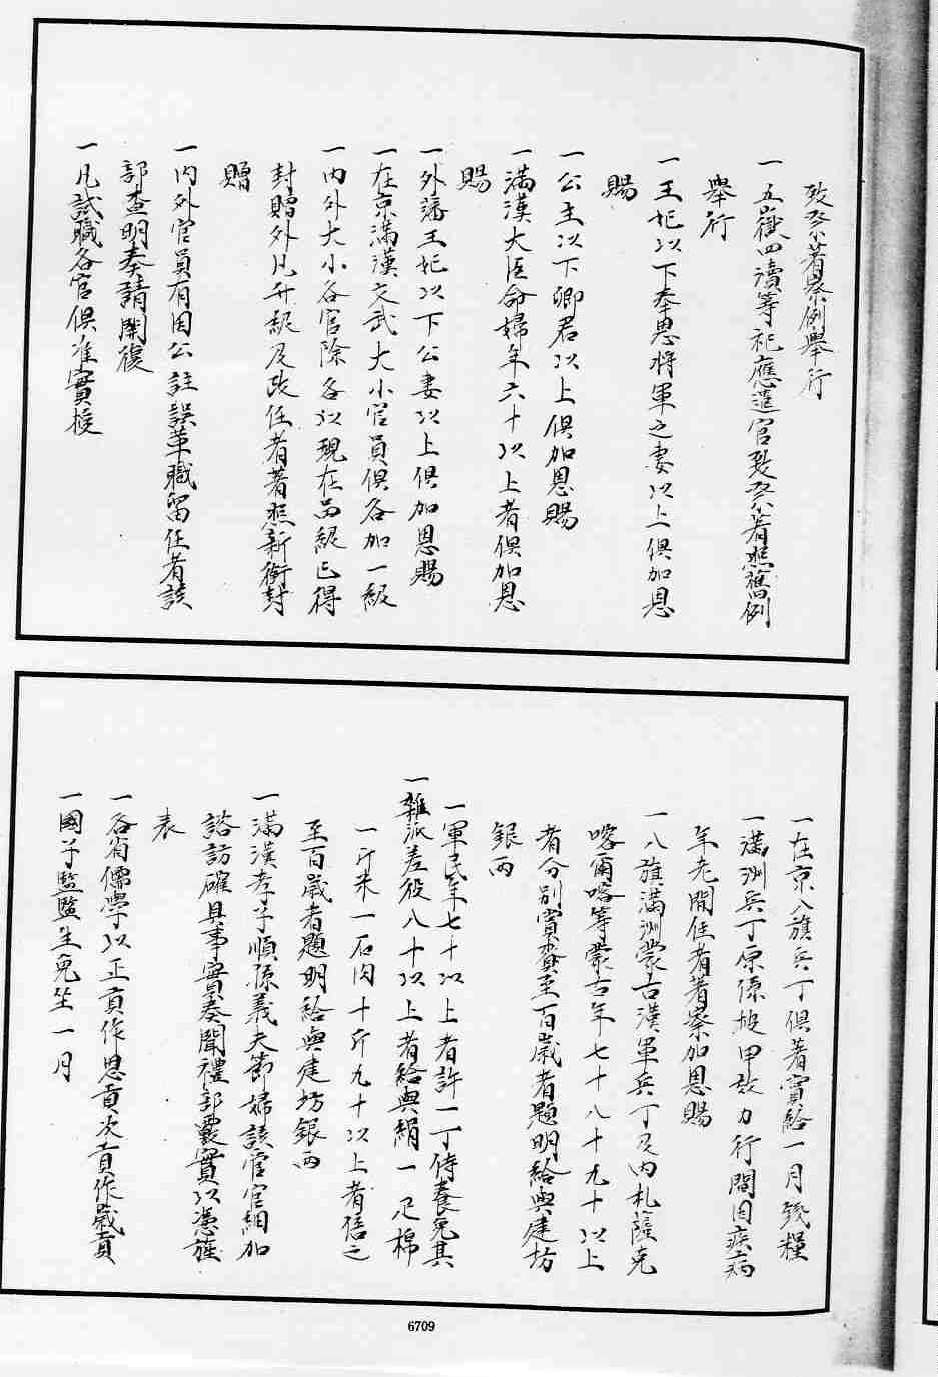 致祭著察例舉行
一五嶽四瀆等祀應遣官致祭著照舊例
舉行
一王妃以下奉恩將軍之妻以上俱加恩
賜
一公主以下鄉君以上俱加恩賜
一滿漢大臣命婦年六十以上者俱加恩
賜
一外藩王妃以下公妻以上俱加恩賜
一在京滿漢文武大小官員俱各加一級
一內外大小各官除各以現在品級已得
封贈外凡升級及改任者著照新銜封
贈
一內外官員有因公註誤革職留任者該
部查明奏請開復
一凡試職各官俱准實授
一在京八旗兵丁俱著賞給一月錢糧
一滿洲兵丁原係披甲効力行間因疾病
年老閒住者著察加恩賜
一八旗滿洲蒙古漢軍兵丁及內札薩克
喀爾喀等蒙古年七十八十九十以上
者分別賞賚至百歲者題明給與建坊
銀兩
一軍民年七十以上者許一丁侍養免其
一雜派差役八十以上者給與絹一疋棉
一斤米一石肉十斤九十以上者倍之
至百歲者題明給與建坊銀兩
一滿漢孝子順孫義夫節婦該管官細加
諮訪確具事實奏聞禮部覈實以憑旌
表
一各省儒學以正貢作恩貢次貢作歲貢
一國子監監生免坐一月
6709